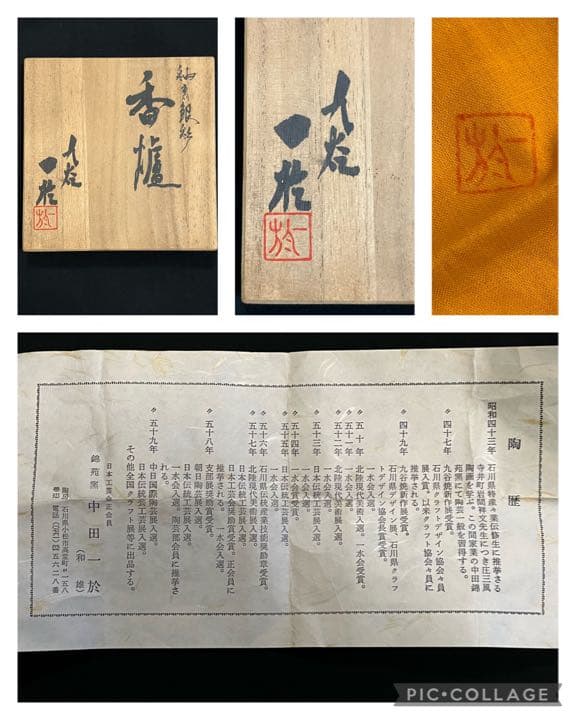 釉裏銀彩
香爐
九谷
一於
於一
九谷
一於
於一
於一
陶歴
昭和四十三年 石川県特産々業伝修生に推挙さる
寺井町岩間祥文先生につき庄三風
陶画を学ぶ。この間家業の中田錦
苑窯にて陶芸一般を習得する。
〃 四十七年 九谷焼新作展入選。
石川県クラフトデザイン協会々員に
展入賞、以来クラフト協会々員に
推挙される。
〃 四十九年 九谷焼新作展受賞。
石川県デザイン展、石川県クラフ
トデザイン協会長賞受賞。
一水会入選。
〃 五十年 北陸現代美術展入選。一水会入選。
〃 五十一年 一水会入選。
〃 五十二年 北陸現代美術展入選。一水会受賞。
〃 五十三年 日本伝統工芸展入選。
一水会入選。
〃 五十四年 一水会入選。
〃 五十五年 日本伝統工芸展入選。
一水会入選。
〃 五十六年 石川県伝統産業技術奨励章受賞。
〃 五十七年 北陸現代美術展入選。
日本工芸会奨励賞受賞。正会員に
推挙される。一水会入選。
〃 五十八年 支部展奨励賞受賞。
朝日陶芸展入選。
日本伝統工芸展入選。
一水会入選。陶芸部会員に推挙さ
れる。
〃 五十九年 中日国際陶芸展入選。
日本伝統工芸展入選。
その他全国クラフト展等に出品する。
日本工芸会正会員
錦苑窯 中田一於
(和雄)
陶房 石川県小松市高堂町
PIC•COLLAGE